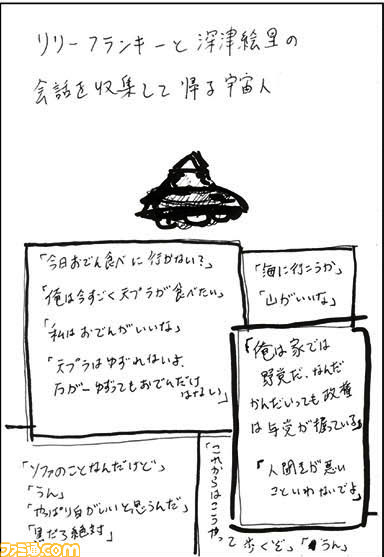 リリーフランキーと深津絵里の
会話を収集して帰る宇宙人
「今日おでん食べに行かない?」
「俺は今すごく天プラが食べたい」
「私はおでんがいいな」
「天プラはゆずれないよ
万が一ゆずってもおでんだけ
はない」
「海に行こうか」
「山がいいな」
「俺は家では
野党だ、なんだ
かんだいっても政権
は与党が握っている」
「人聞きが悪い
こといわないでよ」
「ソファのことなんだけど」
「うん」
「やっぱり白がいいと思うんだ」
「黒だろ絶対」
「これからはこうやって歩くぞ」「うん」
ファミ通.com